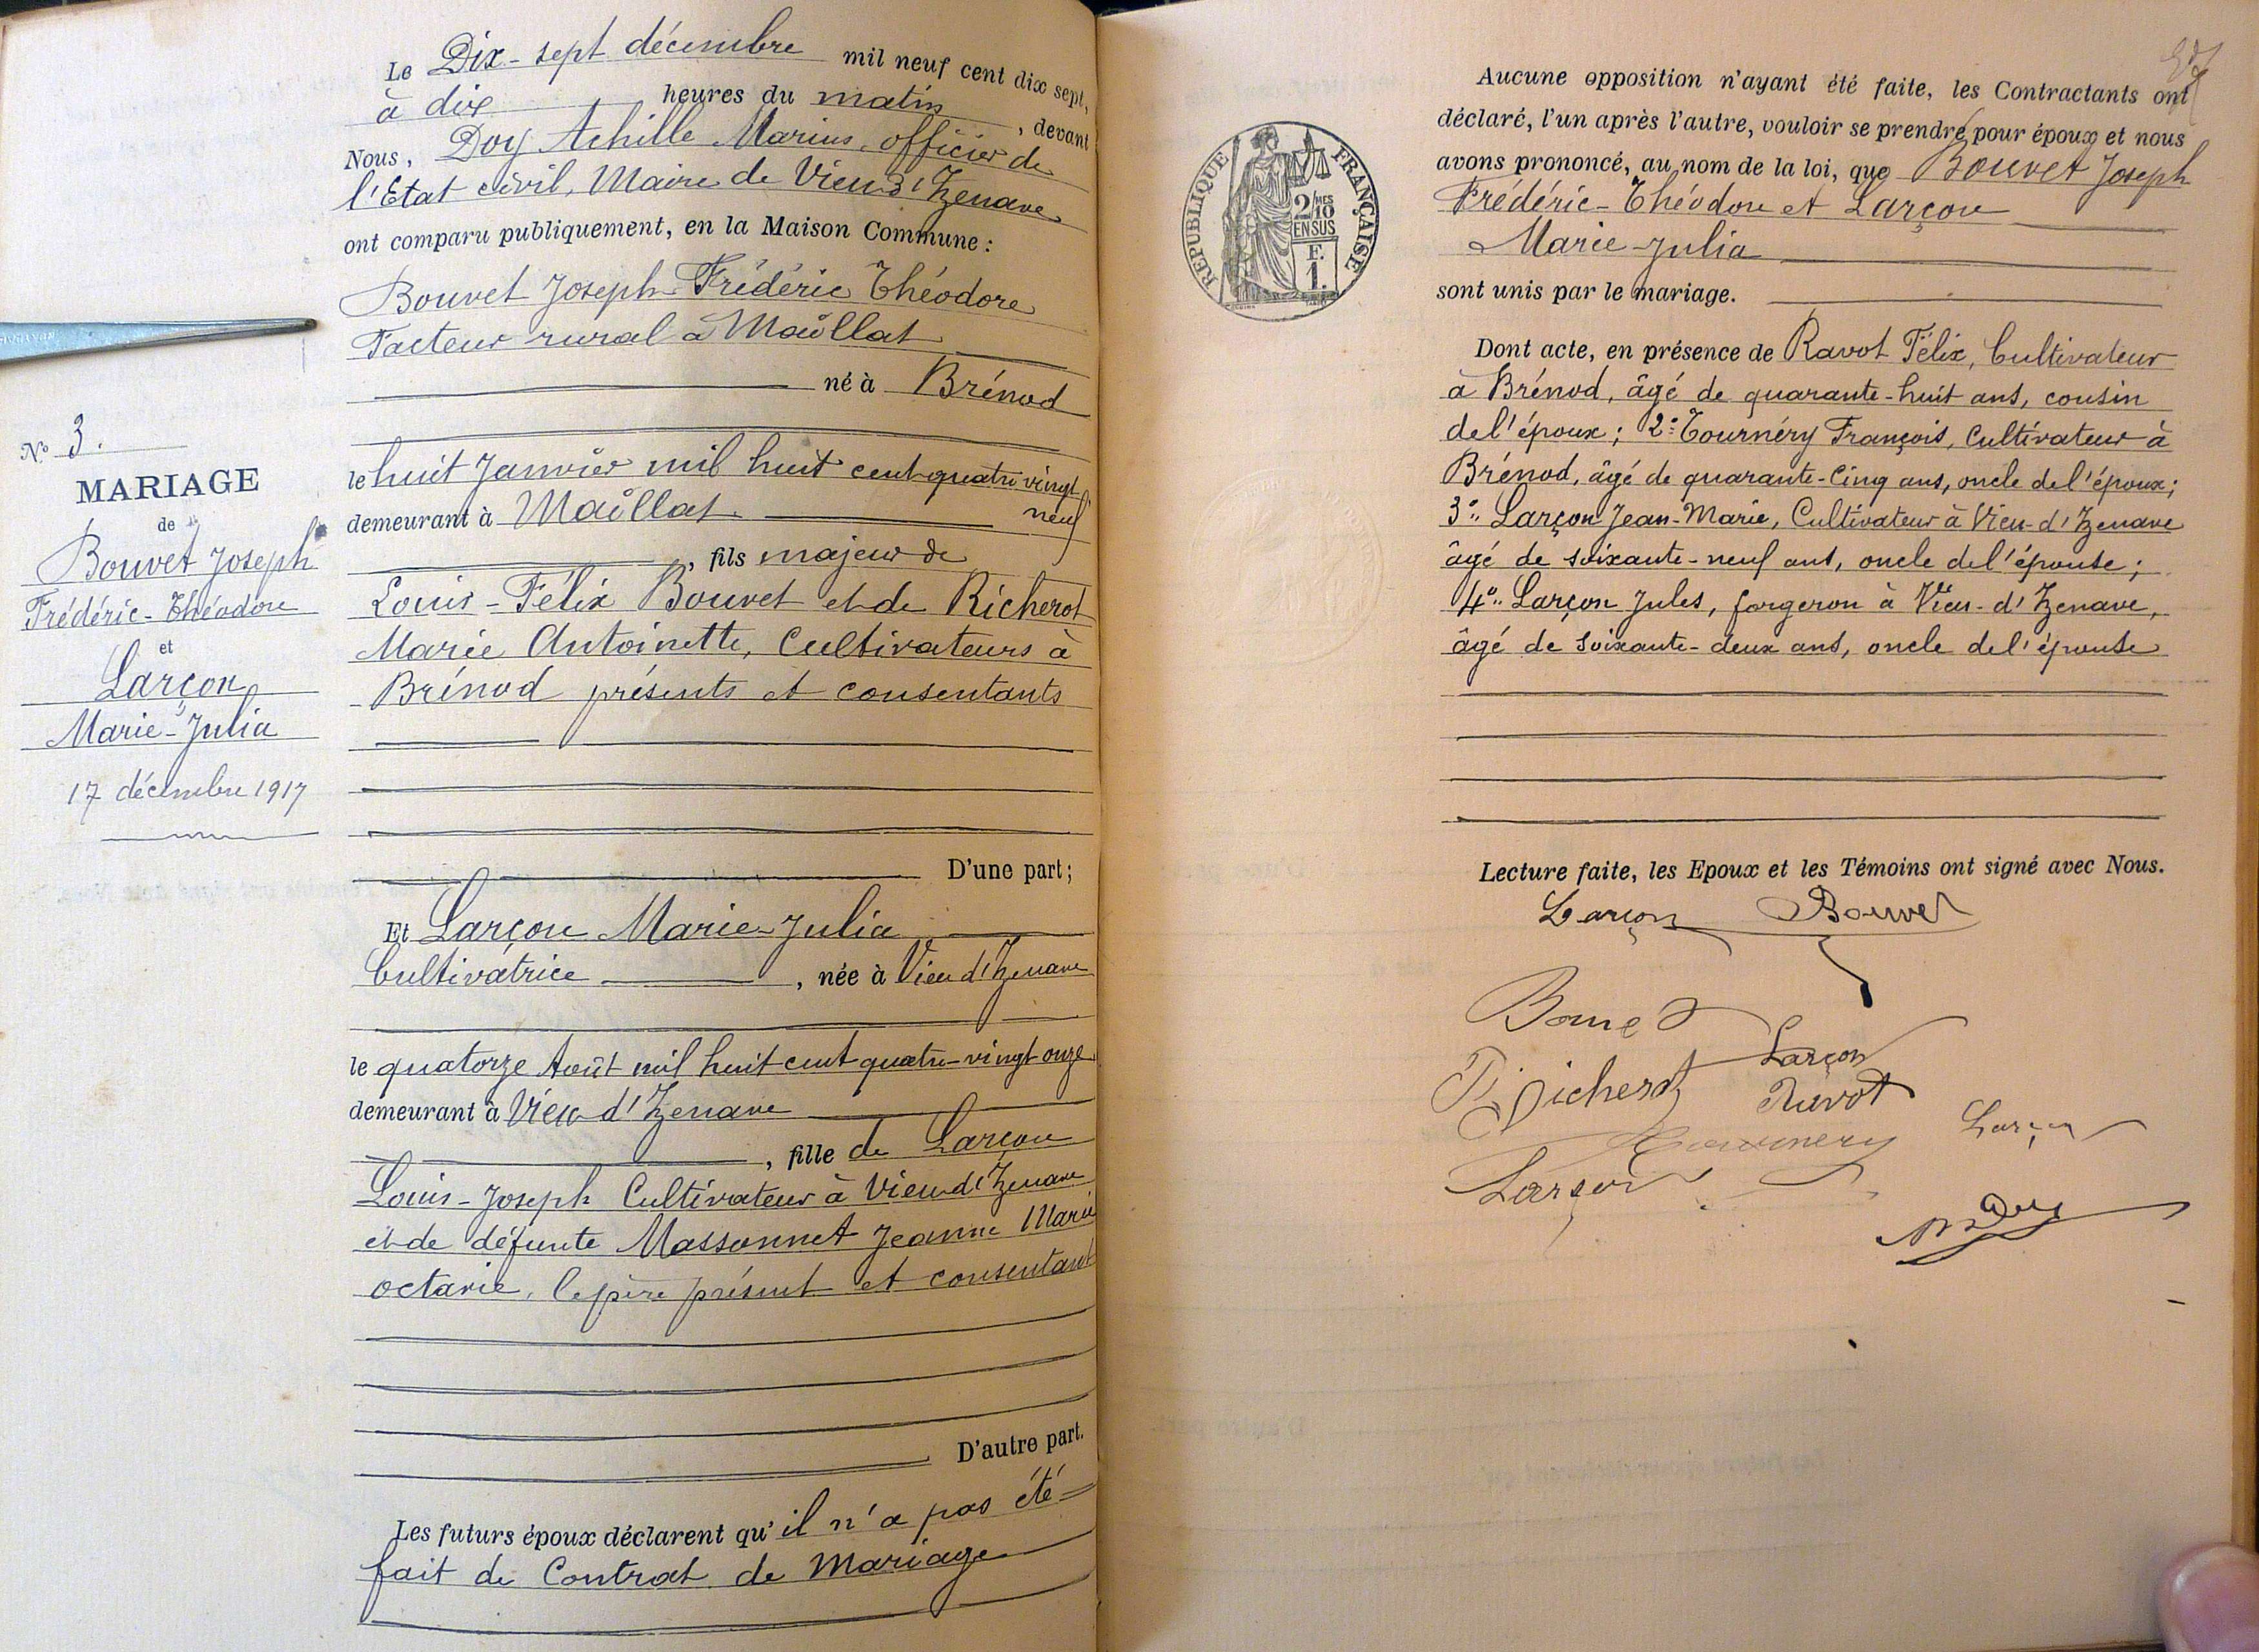 Le Dix-sept décembre mil neuf cent dix sept,
à dix heures du matin, devant
Nous, Doy Achille Marius, officier de
l'Etat civil, Maire de Vieu d'Izenave
ont comparu publiquement, en la Maison Commune :
Bouvet Joseph Frédéric Théodore
Facteur rural à Maillat
né à Brénod
le huit Janvier mil huit cent quatre vingt
neuf
demeurant à Maillat
, fils majeur de
Louis-Félix Bouvet et de Richerot
Marie Antoinette, Cultivateurs à
Brénod présents et consentants
D'une part ;
Et Larçon Marie-Julia
Cultivatrice, née à Vieu d'Izenave
le quatorze Août mil huit cent quatre-vingt onze
demeurant à Vieu d'Izenave
, fille de Larçon
Louis-Joseph Cultivateur à Vieu d'Izenave
et de défunte Massonnet Jeanne Marie
octavie, le père présent et consentant
D'autre part.
Les futurs époux déclarent qu'il n'a pas été
fait de Contrat de Mariage
N° 3.
MARIAGE
de
Bouvet Joseph
Frédéric-Théodore
et
Larçon
Marie-Julia
17 décembre 1917
Aucune opposition n'ayant été faite, les Contractants ont
déclaré, l'un après l'autre, vouloir se prendre pour époux et nous
avons prononcé, au nom de la loi, que Bouvet Joseph
Frédéric-Théodore et Larçon
Marie-Julia
sont unis par le mariage.
Dont acte, en présence de Ravot Félix, Cultivateur
à Brénod, âgé de quarante-huit ans, cousin
de l'époux ; 2° Tournéry François, Cultivateur à
Brénod, âgé de quarante-cinq ans, oncle de l'époux ;
3° Larçon Jean-Marie, Cultivateur à Vieu-d'Izenave
âgé de soixante-neuf ans, oncle de l'épouse ;
4° Larçon Jules, forgeron à Vieu-d'Izenave,
âgé de soixante-deux ans, oncle de l'épouse
Lecture faite, les Epoux et les Témoins ont signé avec Nous.
Larçon Bouvet
Bouvet
Larçon
Richerot
Ravot
Larçon
Tournery
Larçon
Doy
RÉPUBLIQUE FRANÇAISE
2/10 MES
EN SUS
F.
1.